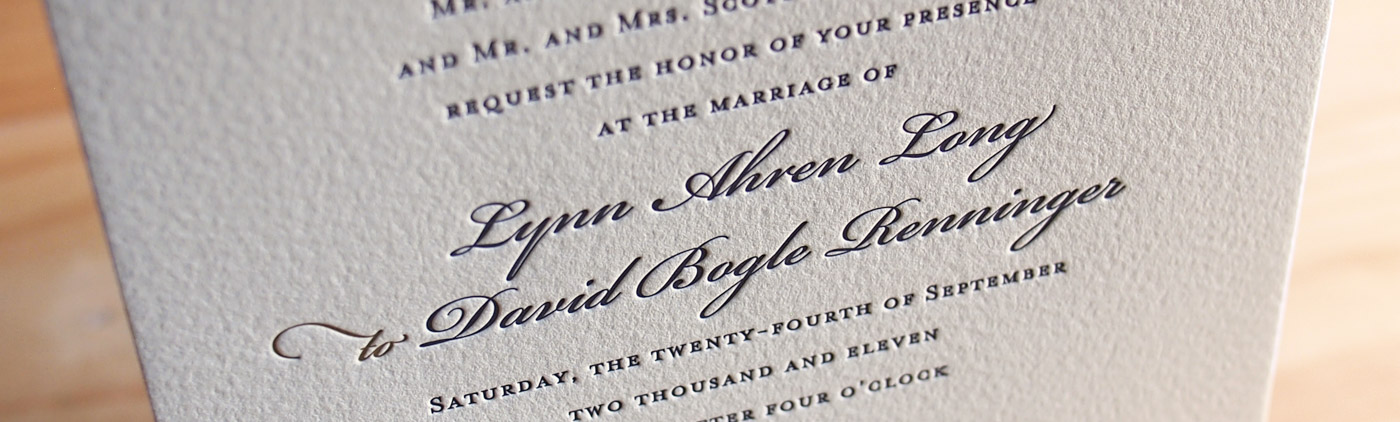 Mr.
and Mr. and Mrs.
request the honor of your presence
at the marriage of
Lynn Ahren Long
to David Bogle Renninger
Saturday, the twenty-fourth of September
two thousand and eleven
four o'clock